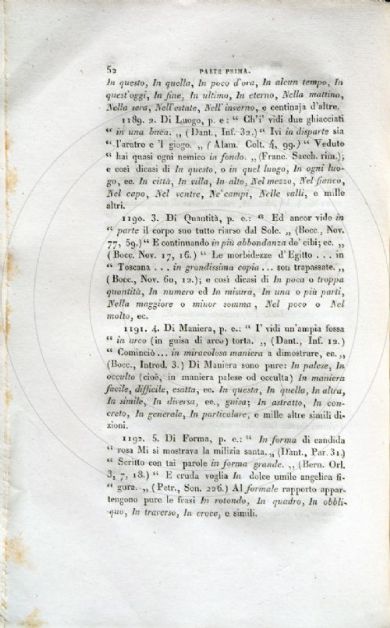 52 PARTE PRIMA.
In questo, In quella, In poco d'ora, In alcun tempo, In
quest'oggi, In fine, In ultimo, In eterno, Nella mattina,
Nella sera, Nell'estate, Nell'inverno, e centinaja d'altre.
1189. 2. Di Luogo, p. e.: “ Ch'i' vidi due ghiacciati
“ in una buca. „ (Dant., Inf. 32.) “ Ivi in disparte sia
“ l'aratro e 'l giogo. „ ( Alam. Colt. 4, 99.) “ Veduto
“ hai quasi ogni nemico in fondo. „ (Franc. Sacch. rim.);
e così dicasi di In questo, o in quel luogo, In ogni luo-
go, ec. In città, In villa, In alto, Nel mezzo, Nel fianco,
Nel capo, Nel ventre, Ne'campi, Nelle valli, e mille
altri.
1190. 3. Di Quantità, p. e.: “ Ed ancor vide in
“ parte il corpo suo tutto riarso dal Sole. „ (Bocc., Nov.
77, 59.) “ E continuando in più abbondanza de' cibi; ec. „
(Bocc. Nov. 17, 16.) “ Le morbidezze d'Egitto . . . in
“ Toscana . . . in grandissima copia . . . son trapassate. „
(Bocc., Nov. 60, 12.); e così dicasi di In poca o troppa
quantità, In numero ed In misura, In una o più parti,
Nella maggiore o minor somma, Nel poco o Nel
molto, ec.
1191. 4. Di Maniera, p. e.: “ I' vidi un'ampia fossa
“ in arco (in guisa di arco) torta. „ (Dant., Inf. 12.)
“ Cominciò... in miracolosa maniera a dimostrare, ec. „
(Bocc., Introd. 3.) Di Maniera sono pure: In palese, In
occulto (cioè, in maniera palese od occulta) In maniera
facile, difficile, esatta, ec. In questa, In quella, In altra,
In simile, In diversa, ec., guisa; In astratto, In con-
creto, In generale, In particolare, e mille altre simili di-
zioni.
1192. 5. Di Forma, p. e.: “ In forma di candida
“ rosa Mi si mostrava la milizia santa. „ (Dant., Par. 31.)
“ Scritto con tai parole in forma grande. „ (Bern. Orl.
3, 7, 18.) “ E cruda voglia In dolce umile angelica fi-
“ gura. „ (Petr., Son. 226.) Al formale rapporto appar-
tengono pure le frasi In rotondo, In quadro, In obbli-
quo, In traverso, In croce, e simili.